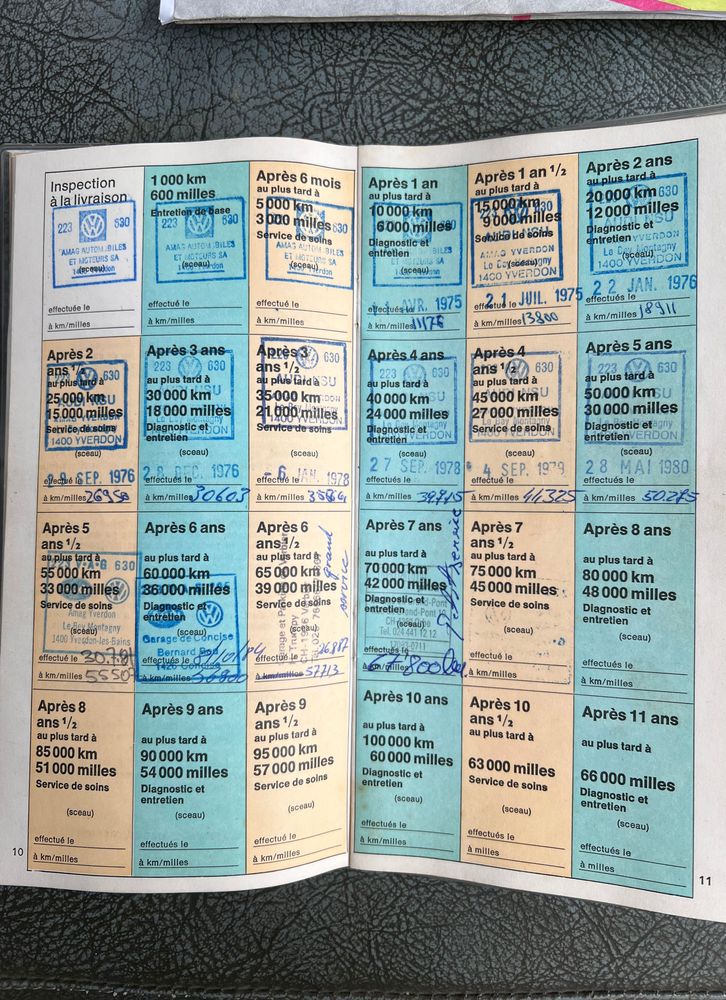 Inspection
à la livraison
223 630
AMAG AUTOMOBILES
ET MOTEURS SA
(sceau)
1400 Yverdon
effectuée le
à km/milles
1 000 km
600 milles
Entretien de base
223 630
AMAG AUTOMOBILES
ET MOTEURS SA
(sceau)
1400 Yverdon
effectué le
à km/milles
Après 6 mois
au plus tard à
5 000 km
3 000 milles
Service de soins
630
AMAG AUTOMOBILES
ET MOTEURS SA
(sceau)
1400 Yverdon
effectué le
à km/milles
Après 1 an
au plus tard à
10 000 km
6 000 milles
Diagnostic et
entretien
(sceau)
AVR. 1975
effectués le
à km/milles 11176
Après 1 an 1/2
au plus tard à
15 000 km
9 000 milles
Service de soins
630
AUDI NSU
AMAG YVERDON
Le Bey Montagny
(sceau)
1400 YVERDON
21 JUIL. 1975
effectué le
à km/milles 13800
Après 2 ans
au plus tard à
20 000 km
12 000 milles
Diagnostic et
entretien
630
AUDI NSU
YVERDON
Le Bey Montagny
(sceau)
1400 YVERDON
22 JAN. 1976
effectués le
à km/milles 18911
Après 2
ans 1/2
au plus tard à
25 000 km
15 000 milles
Service de soins
630
1400 YVERDON
(sceau)
SEP. 1976
effectué le
à km/milles
Après 3 ans
223 630
au plus tard à
30 000 km
18 000 milles
Diagnostic et
entretien
1400 YVERDON
(sceau)
DEC. 1976
effectués le
à km/milles 30603
Après 3
ans 1/2
223 630
au plus tard à
35 000 km
21 000 milles
Service de soins
1400 YVERDON
(sceau)
-6 JAN. 1978
effectué le
à km/milles
Après 4 ans
223 630
au plus tard à
40 000 km
24 000 milles
Diagnostic et
entretien
1400 YVERDON
(sceau)
27 SEP. 1978
effectués le
à km/milles
Après 4
ans 1/2
223 630
au plus tard à
45 000 km
27 000 milles
Service de soins
Le Bey Montagny
1400 YVERDON
(sceau)
4 SEP. 1979
effectué le
à km/milles 44325
Après 5 ans
223 630
au plus tard à
50 000 km
30 000 milles
Diagnostic et
entretien
1400 YVERDON
(sceau)
28 MAI 1980
effectués le
à km/milles 50.275
Après 5
ans 1/2
au plus tard à
223 V·A·G 630
55 000 km
33 000 milles
Service de soins
Amag Yverdon
Le Bey Montagny
1400 Yverdon-les-Bains
effectué le 30.7.81
à km/milles
Après 6 ans
au plus tard à
60 000 km
36 000 milles
Diagnostic et
entretien
Garage de Concise
Bernard
1426 Concise
effectués le
à km/milles
Après 6
ans 1/2
au plus tard à
65 000 km
39 000 milles
Service de soins
grand
service
à km/milles 57713
Après 7 ans
au plus tard à
70 000 km
42 000 milles
Diagnostic et
entretien
Tél. 024 441 12 12
effectués le
à km/milles
service
Après 7
ans 1/2
au plus tard à
75 000 km
45 000 milles
Service de soins
(sceau)
effectué le
à km/milles
Après 8 ans
au plus tard à
80 000 km
48 000 milles
Diagnostic et
entretien
(sceau)
effectués le
à km/milles
Après 8
ans 1/2
au plus tard à
85 000 km
51 000 milles
Service de soins
(sceau)
effectué le
à km/milles
Après 9 ans
au plus tard à
90 000 km
54 000 milles
Diagnostic et
entretien
(sceau)
effectués le
à km/milles
Après 9
ans 1/2
au plus tard à
95 000 km
57 000 milles
Service de soins
(sceau)
effectué le
à km/milles
Après 10 ans
au plus tard à
100 000 km
60 000 milles
Diagnostic et
entretien
(sceau)
effectués le
à km/milles
Après 10
ans 1/2
au plus tard à
63 000 milles
Service de soins
(sceau)
effectué le
à milles
Après 11 ans
au plus tard à
66 000 milles
Diagnostic et
entretien
(sceau)
effectués le
à milles
10
11